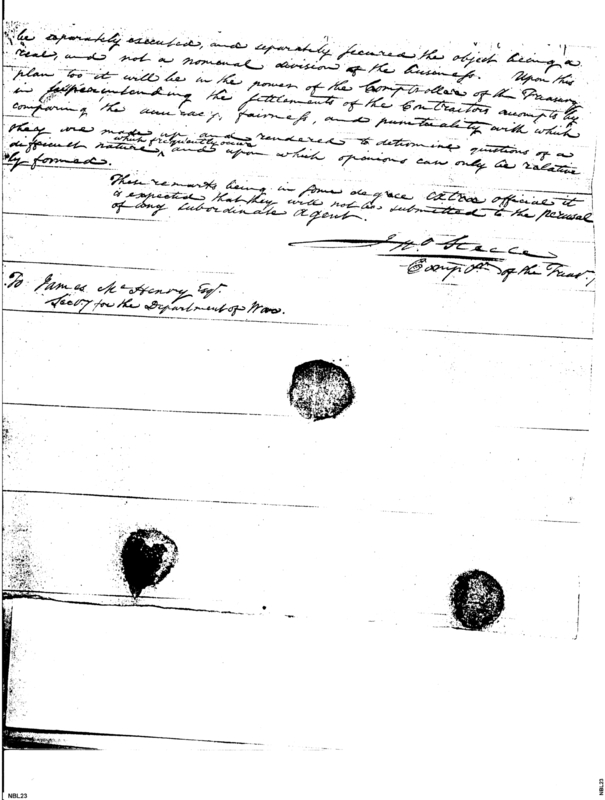 be separately executed, and separately secured the object being a
real, and not a nomenal division of the business. Upon this
plan too it will be in the power of the Comptroller of the Treasury
in superintending the settlements of the Contractors accompts by
comparing the accuracy, fairness, and punctuality with which
they are made up and rendered to determine questions of a
which frequently occur
different nature, and upon which opinions can only be relative
ly formed.
These remarks being in some degree extra official it
is expected that they will not be submitted to the perusal
of any subordinate agent.
Jno Steele
Comptr. of the Treasy
To James McHenry Esqr.
Secy for the Department of War.
NBL23
NBL23